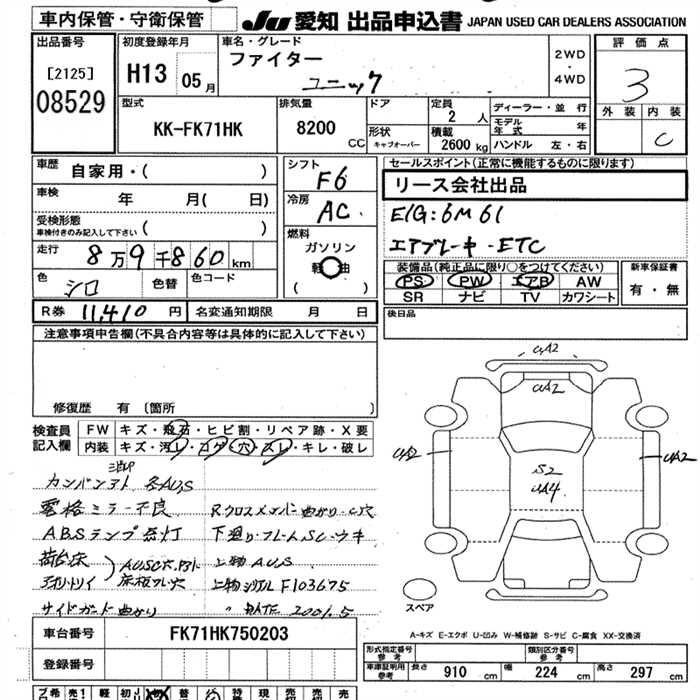 車内保管・守衛保管
JU 愛知 出品申込書 JAPAN USED CAR DEALERS ASSOCIATION
出品番号
[2125]
08529
初度登録年月
H13 05 月
車名・グレード
ファイター
ユニック
2WD
・
4WD
評価点
3
外装 内装
C
型式
KK-FK71HK
排気量
8200 CC
ドア
形状 キャブオーバー
定員
2 人
積載
2600 kg
ディーラー・並行
モデル年式 年
ハンドル 左・右
車歴 自家用・( )
車検 年 月( 日)
受検形態
車検付きのみ記入して下さい ( )
走行 8万9千860 km
色 シロ 色替 色コード
シフト
F6
冷房
AC
燃料
ガソリン
軽油
( )
セールスポイント(正常に機能するものに限ります)
リース会社出品
E/G:6M61
エアブレーキ・ETC
装備品(純正品に限り○をつけてください)
PS PW エアB AW
SR ナビ TV カワシート
新車保証書
有・無
R券 11,410 円 名変通知期限 月 日
後日品
注意事項申告欄(不具合内容等は具体的に記入して下さい)
修復歴 有 〔箇所 〕
検査員記入欄
FW キズ・飛石・ヒビ割・リペア跡・X要
内装 キズ・汚レ・コゲ・穴・スレ・キレ・破レ
各AUS
電格ミラー不良
Rクロスメンバー曲がり・穴
ABSランプ点灯
下廻り・フレームSC・ウキ
荷台床
上物AUS
上物シリアルF103675
サイドガード曲がり
〃 DATE 2001.5
UA2
UA2
UA2
UA2
S2
UA4
スペア
車台番号 FK71HK750203
登録番号
A-キズ E-エクボ U-凹み W-補修跡 S-サビ C-腐食 XX-交換済
形式指定番号 参考
類別区分番号 参考
車庫証明用 参考 長さ 910 cm 幅 224 cm 高さ 297 cm